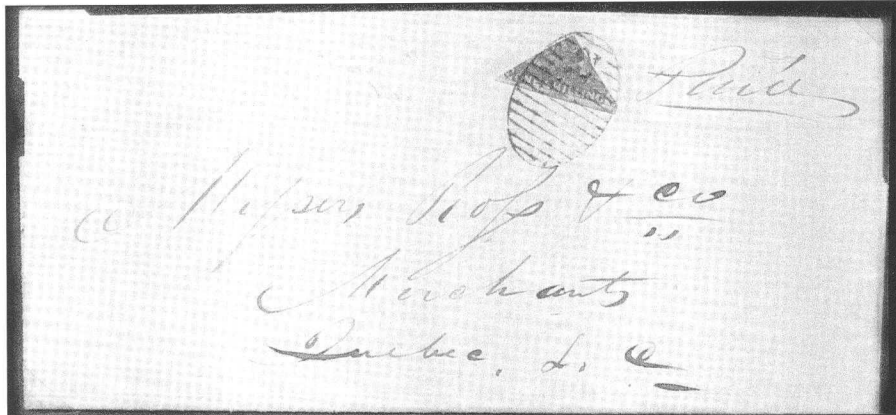 Paid
Messrs Ross & Co
Merchants
Quebec, L. C